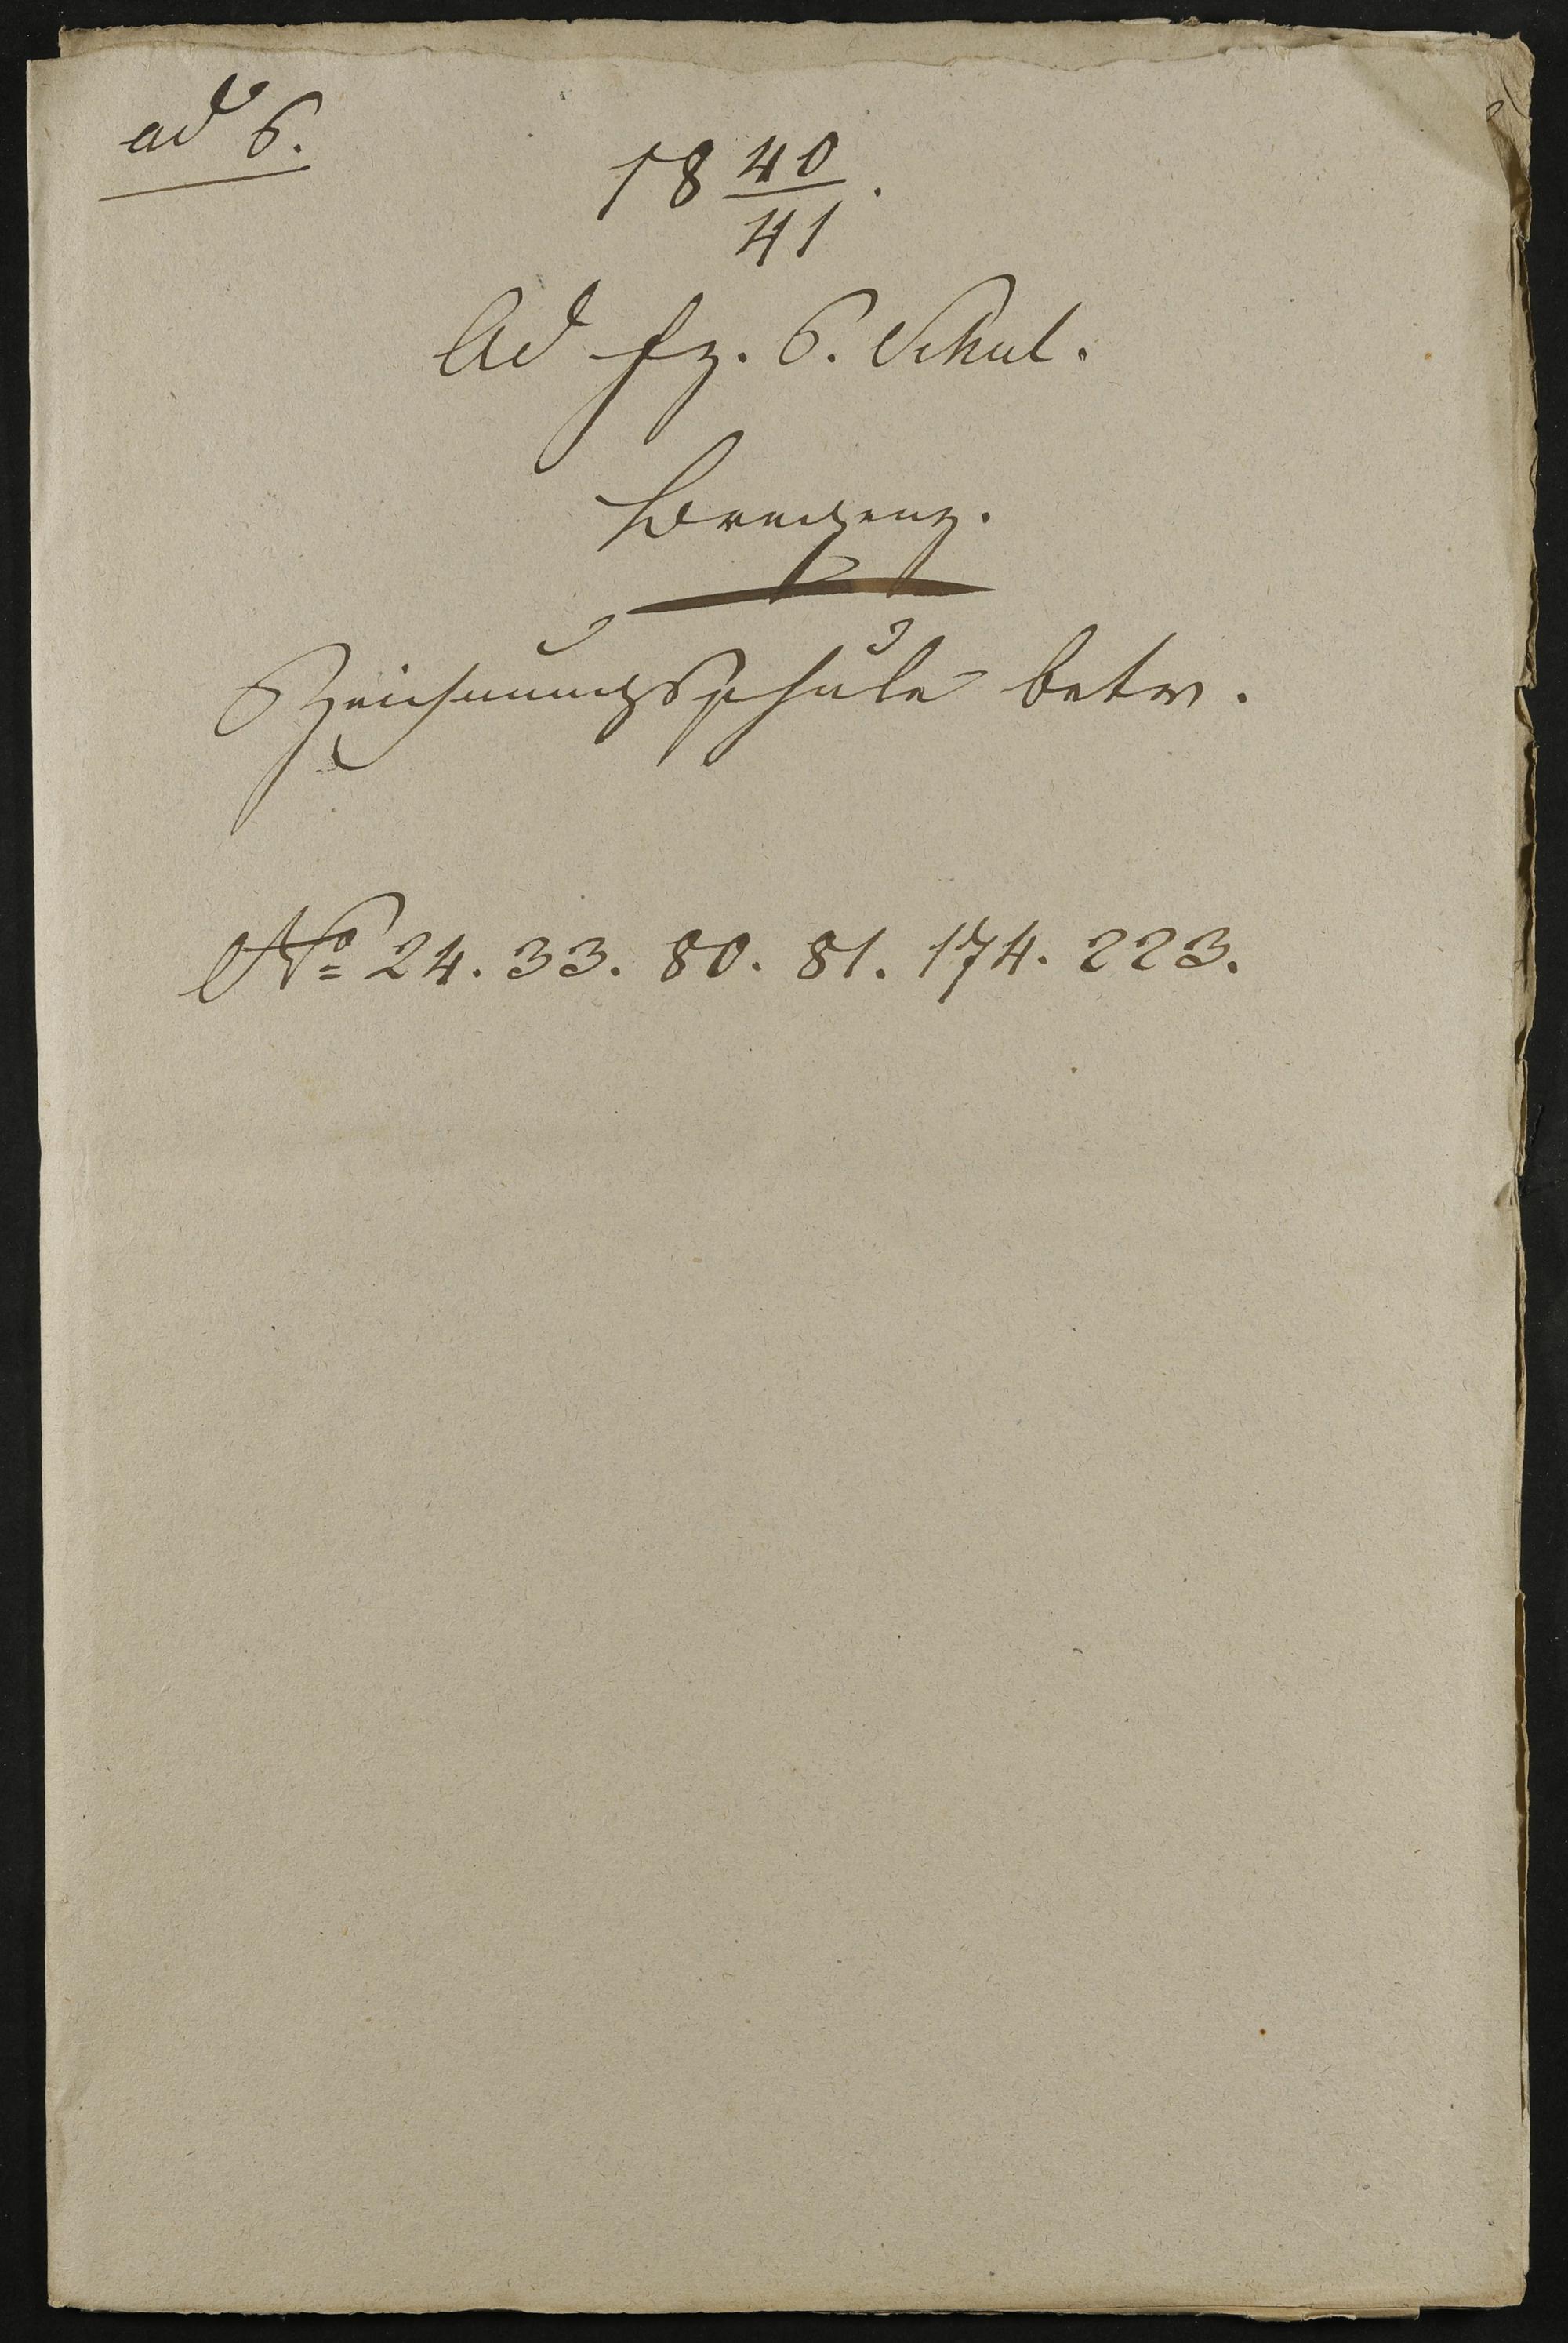 ad 6.
18 40/41.
Ad fz. 6. Schul.
Bregenz.
Zeichnungsschule betr.
No 24. 33. 80. 81. 174. 223.